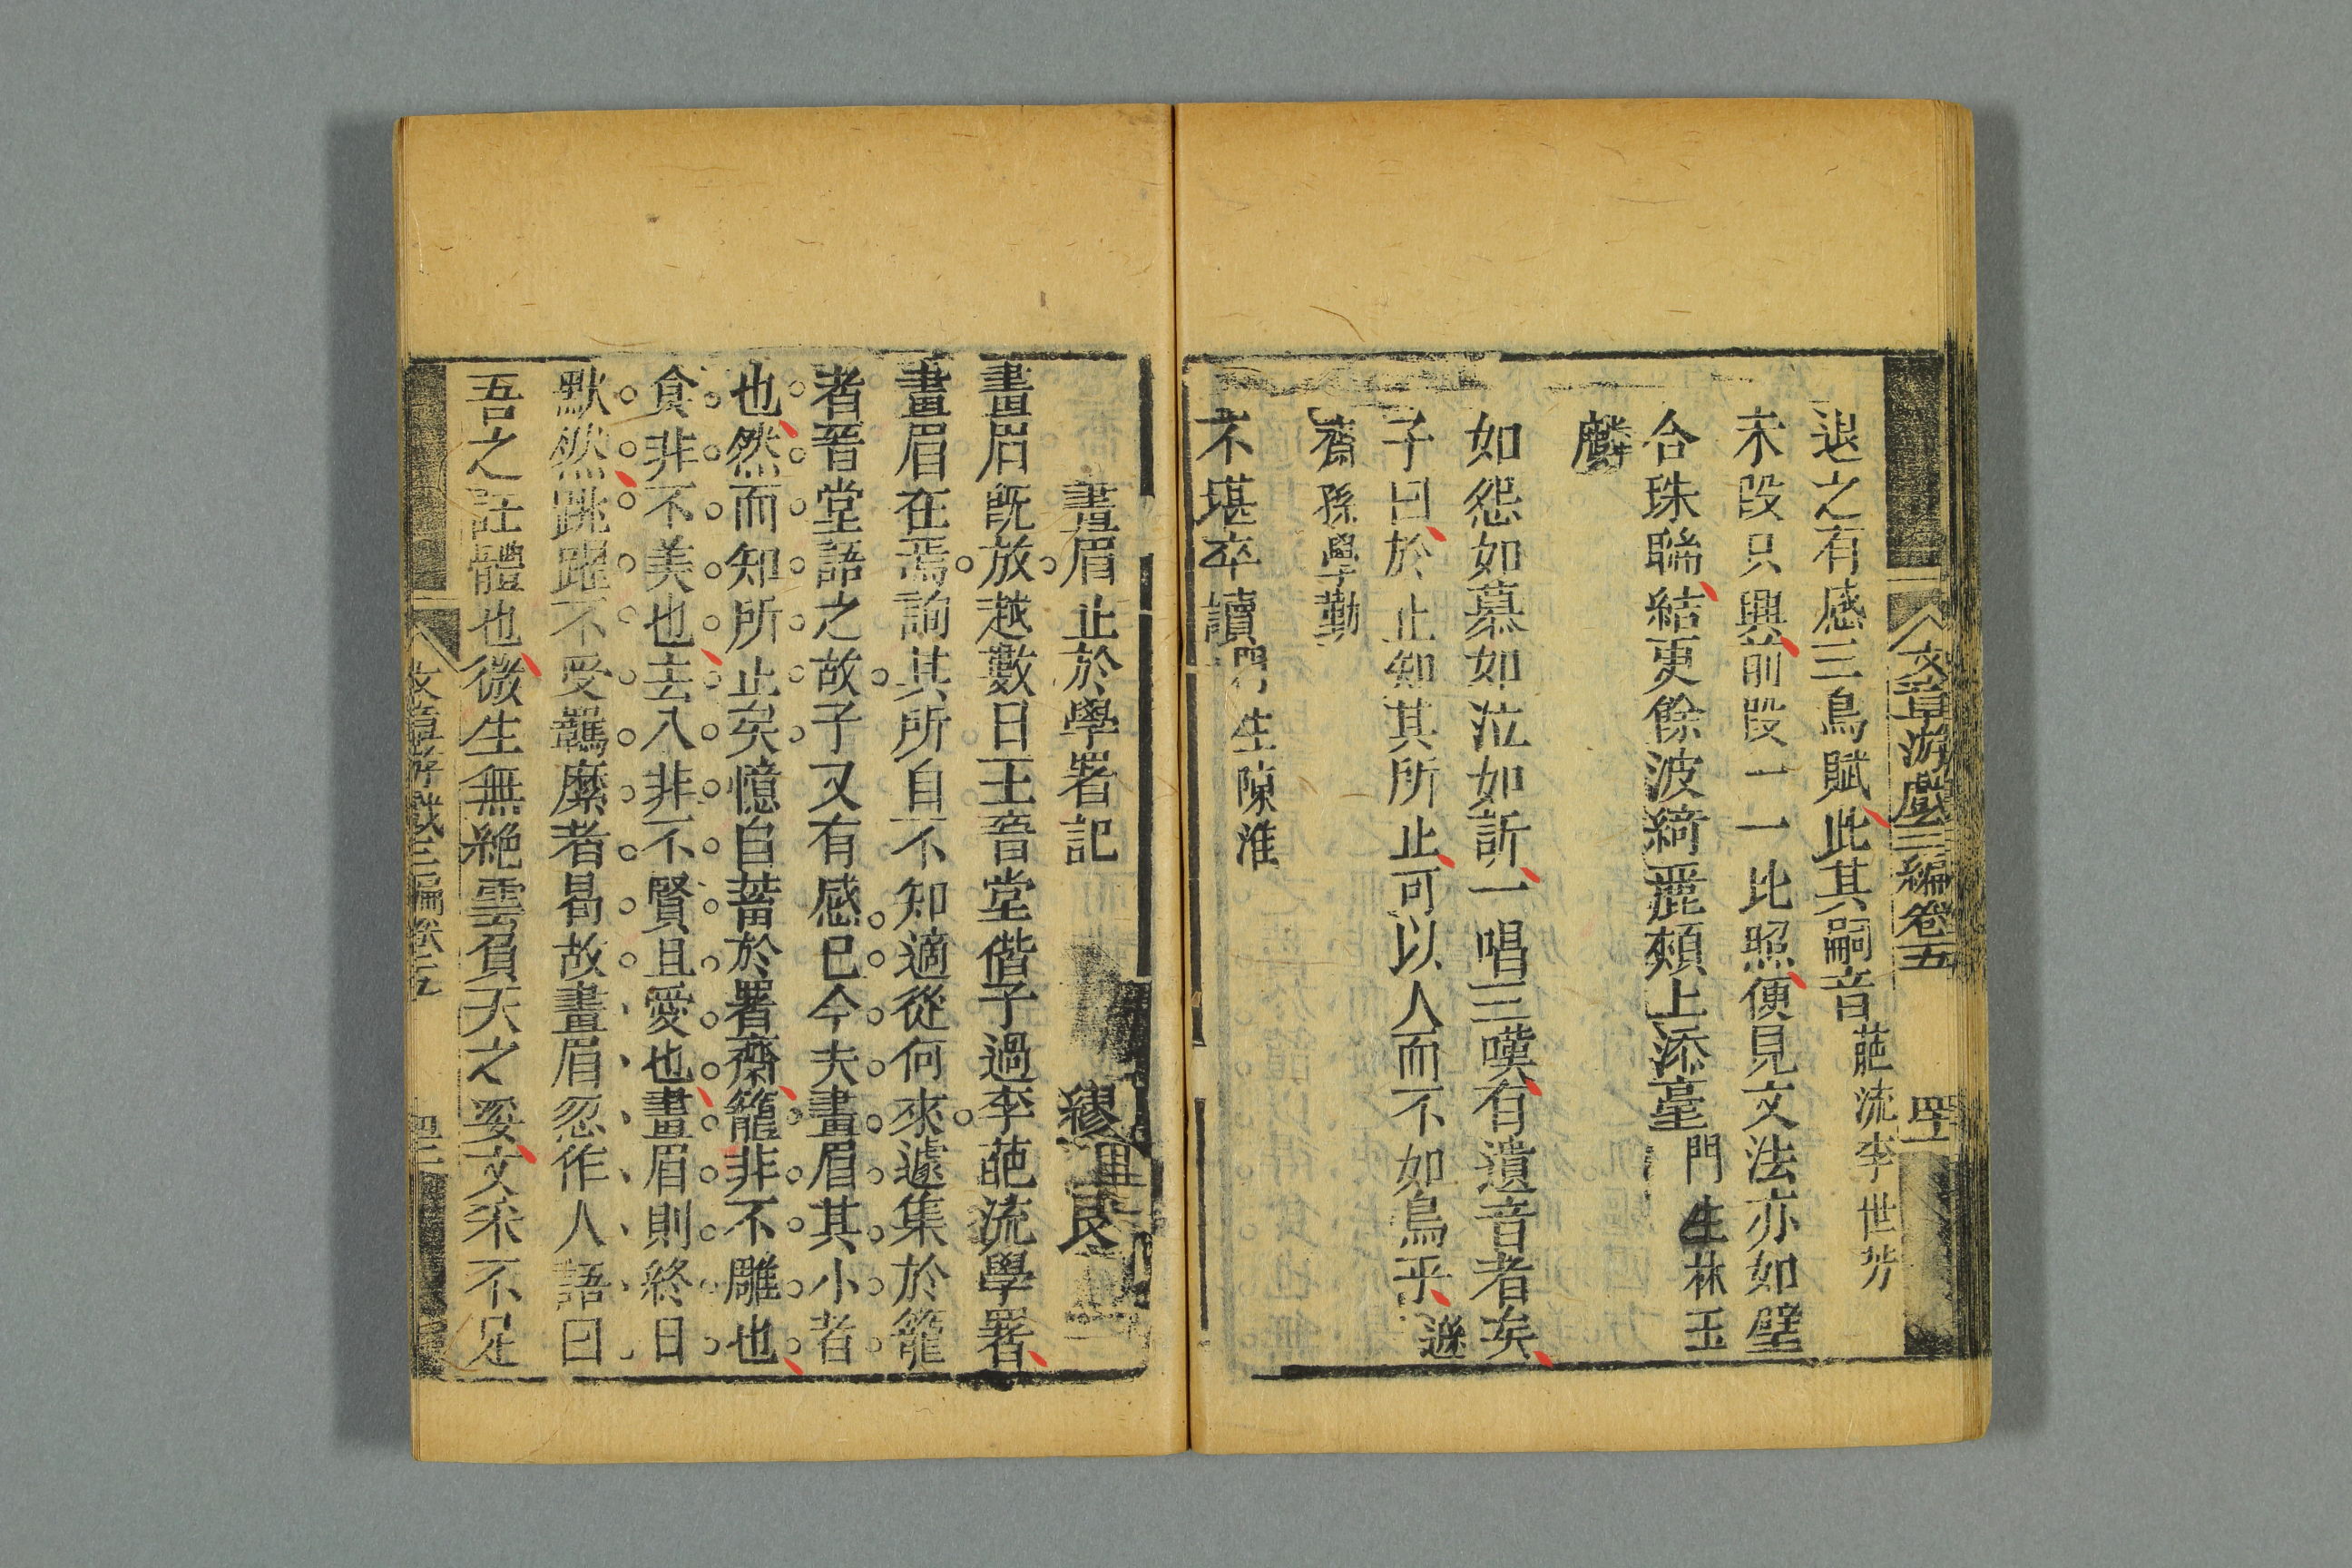 文章游戲三編卷五
退之有感三鳥賦此其嗣音葩流李世芳
末段只與前段一一比照便見文法亦如璧
合珠聯結更餘波綺麗頰上添毫門生林玉
麟
如怨如慕如泣如訴一唱三嘆有遺音者矣
子曰於止知其所止可以人而不如鳥乎遜
齋孫學勤
不堪卒讀門生陳淮
畫眉止於學署記 繆艮
畫眉既放越數日王晉堂偕予過李葩流學署
畫眉在焉詢其所自不知適從何來遽集於籠
者晉堂語之故予又有感已今夫畫眉其小者
也然而知所止矣憶自蓄於署齋籠非不雕也
食非不美也去入非不賢且愛也畫眉則終日
默然跳躍不受羈縻者曷故畫眉忽作人語曰
吾之託體也微生無絶雲負天之翼文采不足
文章游戲三編卷五